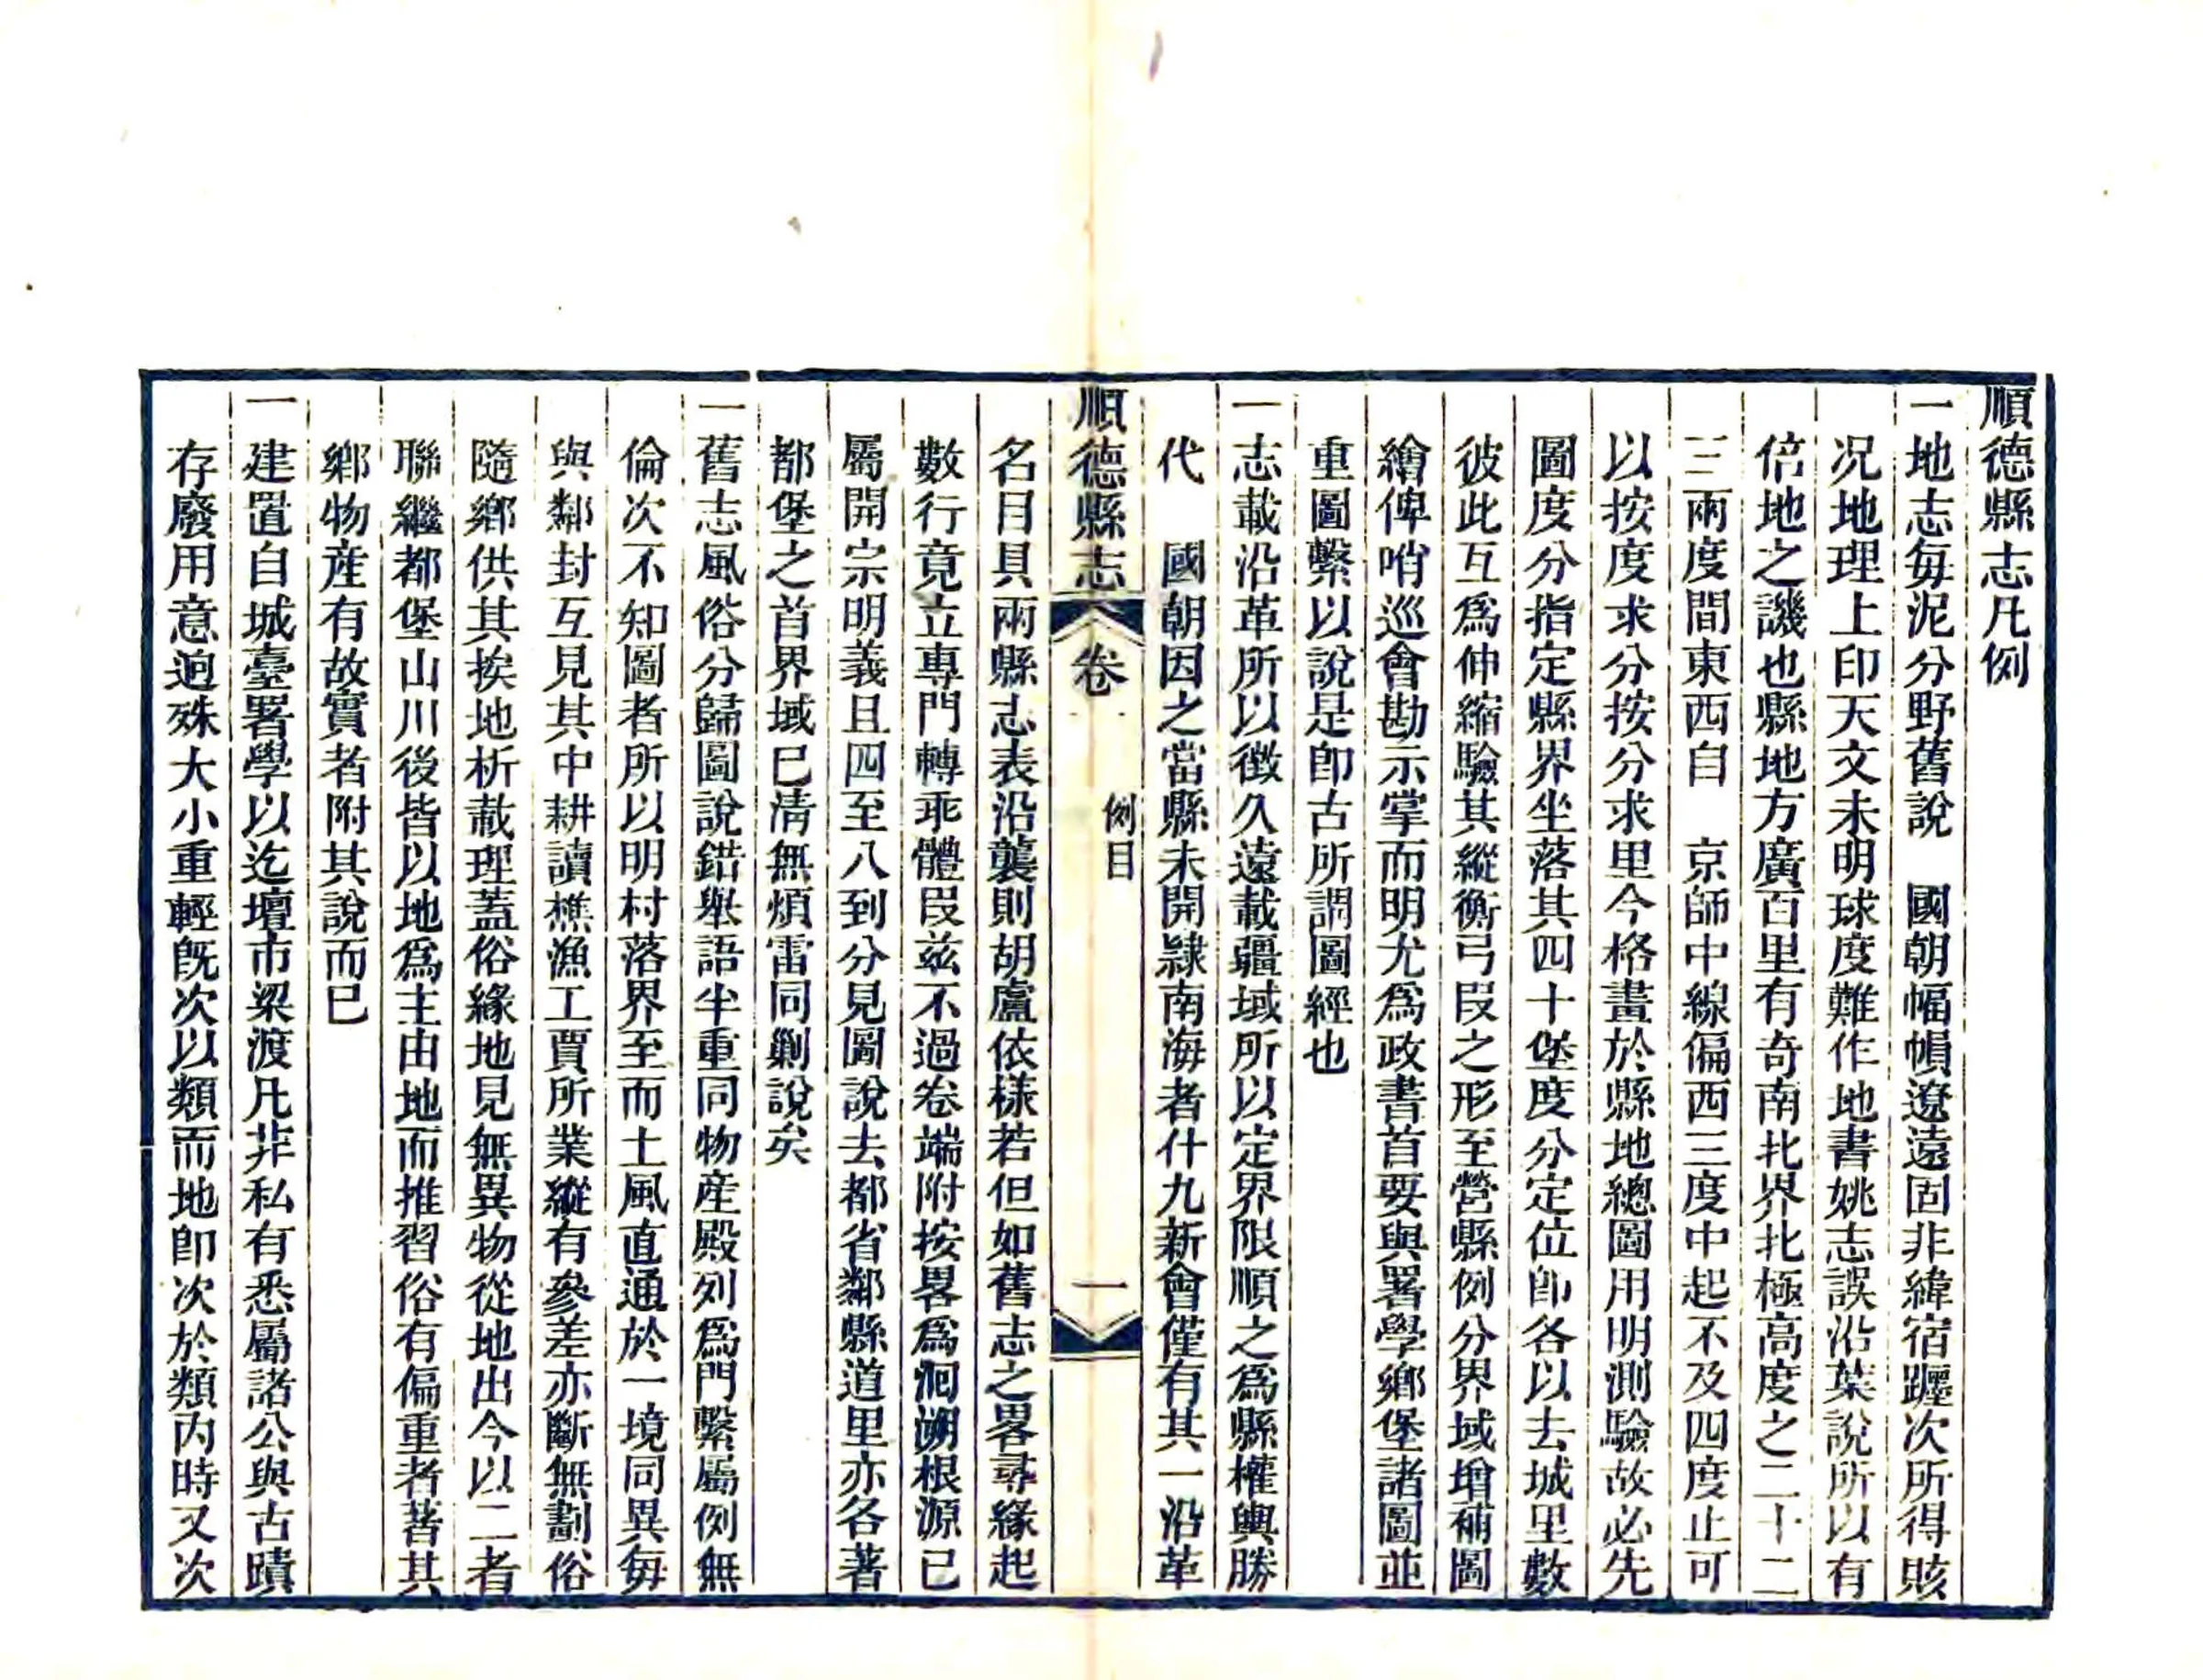 順德縣志凡例
一地志每泥分野舊說　國朝幅幀遼遠固非緯宿躔次所得賅
况地理上印天文未明球度難作地書姚志誤沿葉說所以有
倍地之譏也縣地方廣百里有奇南北界北極高度之二十二
三兩度間東西自　京師中線偏西三度中起不及四度止可
以按度求分按分求里今格畫於縣地總圖用明測驗故必先
圖度分指定縣界坐落其四十堡度分定位卽各以去城里數
彼此互爲伸縮驗其縱衡弓段之形至營縣例分界域增補圖
繪俾哨巡會勘示掌而明尤爲政書首要與署學鄉堡諸圖並
重圖繫以說是卽古所謂圖經也
一志載沿革所以徵久遠載疆域所以定界限順之爲縣權輿勝
代　國朝因之當縣未開隷南海者什九新會僅有其一沿革
順德縣志　卷　例目　一
名目具兩縣志表沿襲則胡盧依樣若但如舊志之畧尋緣起
數行竟立專門轉乖體段兹不過卷端附按畧爲泂溯根源已
屬開宗明義且四至八到分見圖說去都省鄰縣道里亦各著
都堡之首界域已淸無煩雷同剿說矣
一舊志風俗分歸圖說錯舉語半重同物產殿列爲門繫屬例無
倫次不知圖者所以明村落界至而土風直通於一境同異每
與鄰封互見其中耕讀樵漁工賈所業縱有參差亦斷無劃俗
隨鄉供其挨地析載理蓋俗緣地見無異物從地出今以二者
聯繼都堡山川後皆以地爲主由地而推習俗有偏重者著其
鄉物產有故實者附其說而已
一建置自城臺署學以迄壇市梁渡凡非私有悉屬諸公與古蹟
存廢用意逈殊大小重輕旣次以類而地卽次於類內時又次